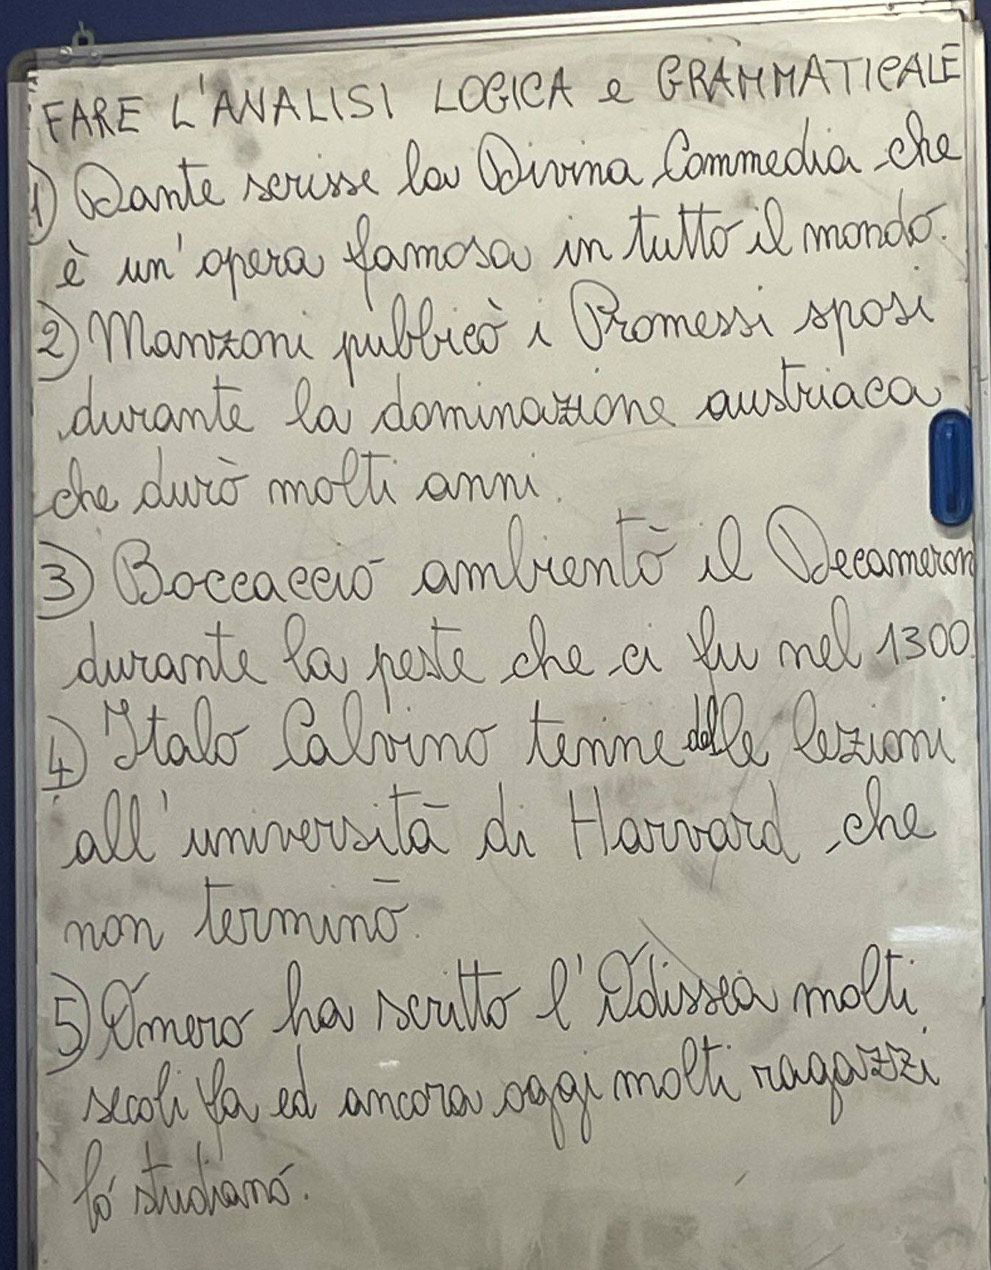 FARE L'ANALISI LOGICA e GRAMMATICALE
1) Dante scrisse la Divina Commedia che
è un'opera famosa in tutto il mondo.
2) Manzoni pubblicò i Promessi sposi
durante la dominazione austriaca
che durò molti anni.
3) Boccaccio ambientò il Decameron
durante la peste che ci fu nel 1300.
4) Italo Calvino tenne delle lezioni
all'università di Harvard che
non terminò.
5) Omero ha scritto l'Odissea molti
secoli fa ed ancora oggi molti ragazzi
lo studiano.